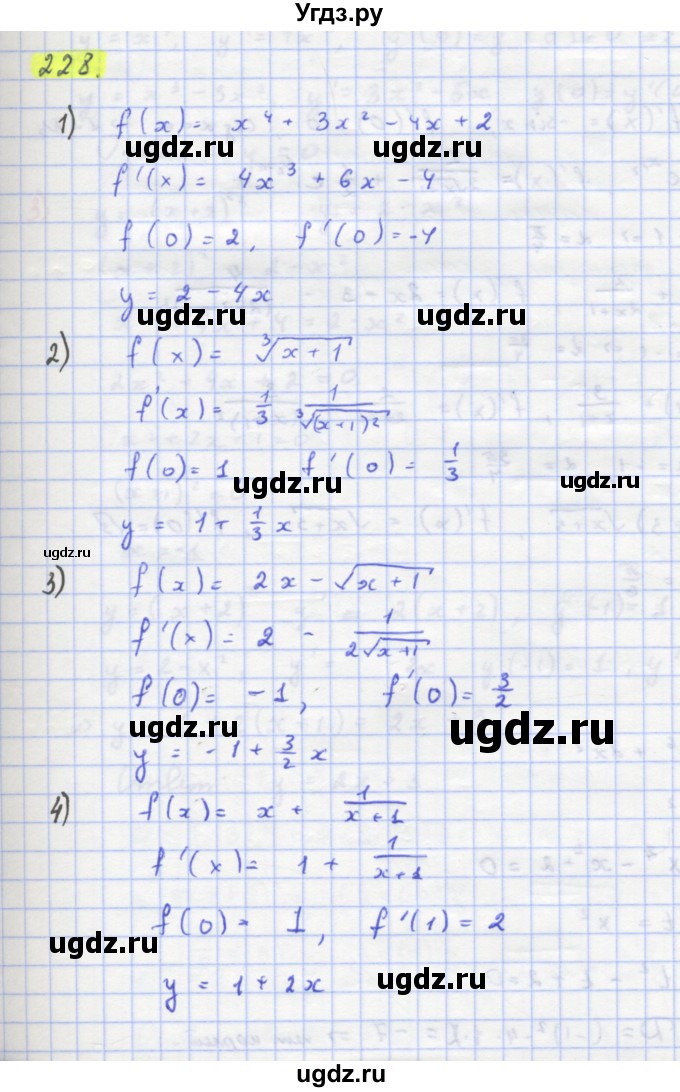 Угдз.ру
228.
1) f(x) = x⁴ + 3x² - 4x + 2
ugdz.ru ugdz.ru
f'(x) = 4x³ + 6x - 4
f(0) = 2, f'(0) = -4
y = 2 - 4x
ugdz.ru ugdz.ru
2) f(x) = ∛(x+1)
f'(x) = 1/3 1/∛(x+1)²
f(0) = 1 f'(0) = 1/3
ugdz.ru ugdz.ru
y = 1 + 1/3 x
ugdz.ru
3) f(x) = 2x - √(x+1)
f'(x) = 2 - 1/(2√(x+1))
f(0) = -1, f'(0) = 3/2
ugdz.ru ugdz.ru
y = -1 + 3/2 x
4) f(x) = x + 1/(x+1)
f'(x) = 1 + 1/(x+1)
f(0) = 1, f'(1) = 2
ugdz.ru ugdz.ru
y = 1 + 2x
ugdz.ru